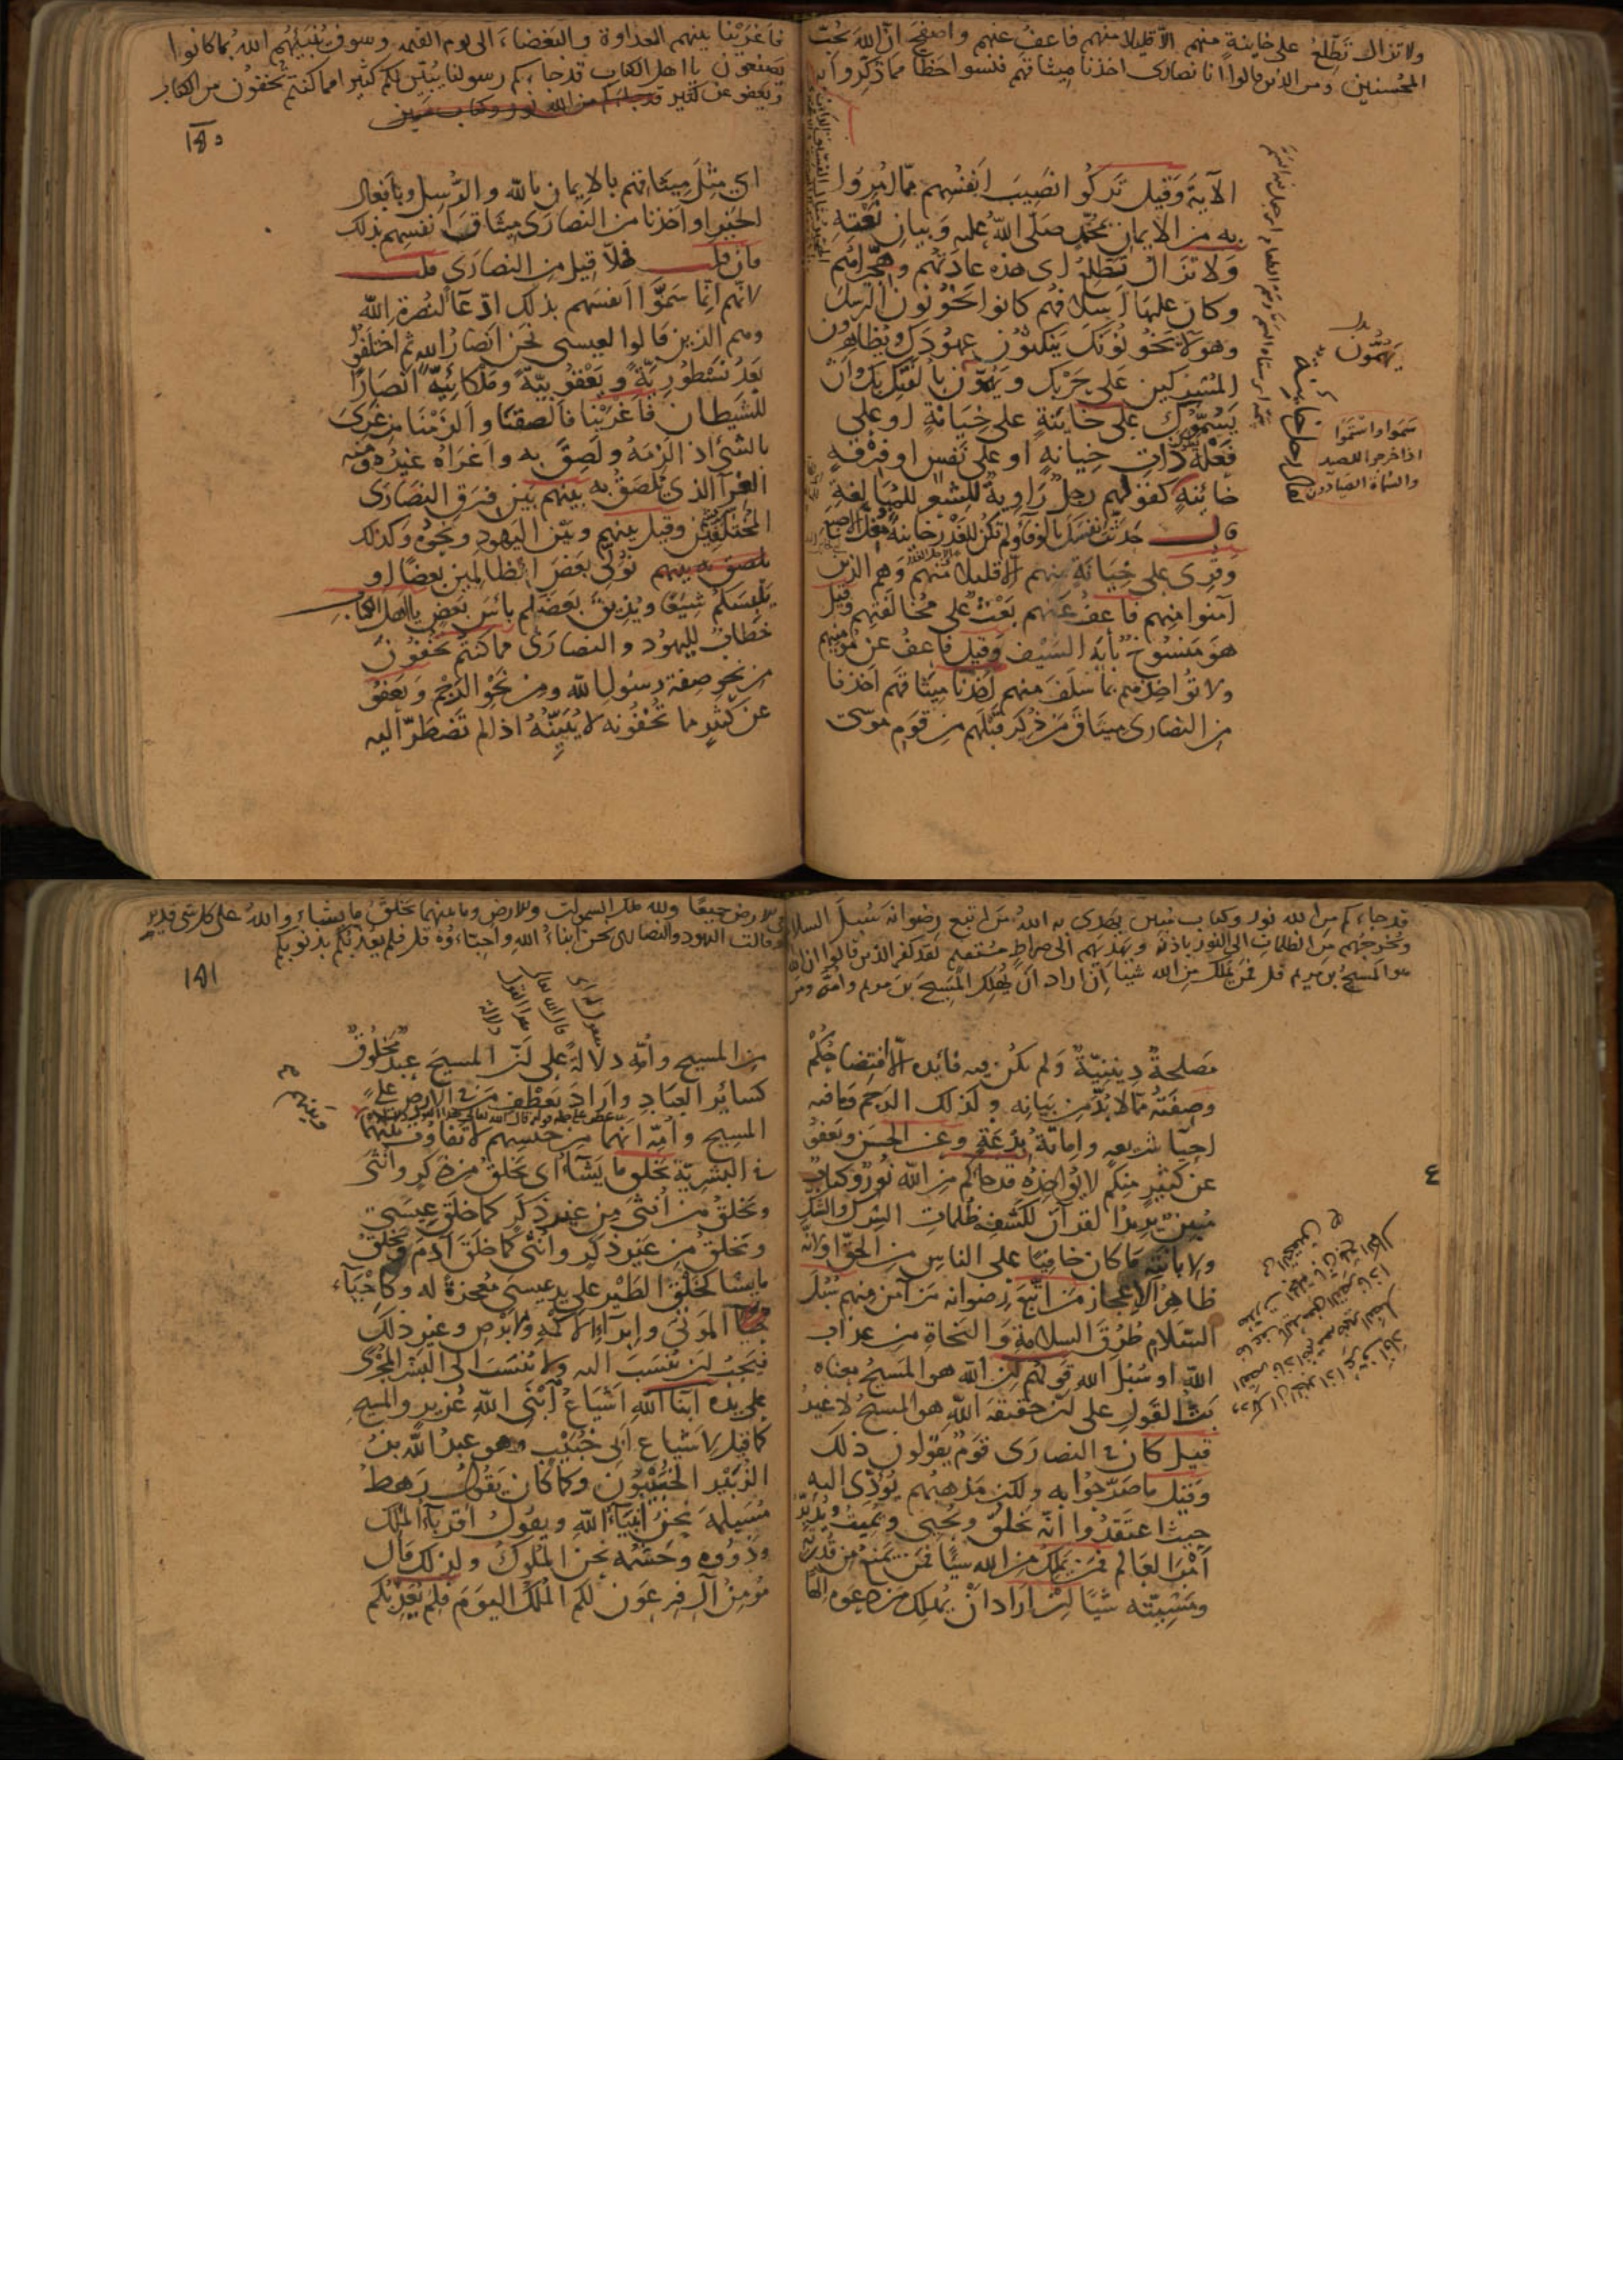 ولا تزال تطلع على خائنة منهم الا قليلا منهم فاعف عنهم واصفح ان الله يحب
المحسنين ومن الذين قالوا انا نصارى اخذنا ميثاقهم فنسوا حظا مما ذكروا به
الآية وقيل تركوا انصيب انفسهم مما امروا
به من الايمان بمحمد صلى الله عليه وبيان نعته
ولا تزال تطلع اى هذه عادتهم وهجيراهم
وكان عليها اسلافهم كانوا يخونون الرسل
وهولاء يخونونك ينكثون عهودك ويظاهرون
المشركين على حربك ويهمون بالفتك بك وان
يسموك على خائنة على خيانة او على
فعلة ذات خيانة او على نفس او فرقة
خائنة كقولهم رجل راوية للشعر للمبالغة
قال حدثت نفسك بالوفاء ولم تكن للغدر خائنة مغل الاصبع
وقرى على خيانة منهم الا قليلا منهم وهم الذين
آمنوا منهم فاعف عنهم بعث على مخالقتهم وقيل
هو منسوخ بآية السيف وقيل فاعف عن مومنيهم
ولا تؤاخذهم بما سلف منهم اخذنا ميثاقهم اخذنا
من النصارى ميثاق من ذكر قبلهم من قوم موسى
يهمون
سموا واستموا
اذا خرجوا للصيد
والسماة الصيادون
فاغرينا بينهم العداوة والبغضاء الى يوم القيمة وسوف ينبئهم الله بما كانوا
يصنعون يا اهل الكتاب قد جاءكم رسولنا يبين لكم كثيرا مما كنتم تخفون من الكتاب
ويعفو عن كثير قد جاءكم من الله نور وكتاب مبين
١٨٥
اى مثل ميثاقهم بالايمان بالله والرسل وبافعال
الخير او اخذنا من النصارى ميثاق انفسهم بذلك
فان قلت فهلا قيل من النصارى قلت
لانهم انما سموا انفسهم بذلك ادعاء لنصرة الله
وهم الذين قالوا لعيسى نحن انصار الله ثم اختلفوا
بعد نسطورية ويعقوبية وملكائية انصارا
للشيطان فاغرينا فالصقنا والزمنا من غرى
بالشئ اذا لزمه ولصق به واغراه غيره ومنه
الغرآ الذى يلصق به بينهم بين فرق النصارى
المختلفين وقيل بينهم وبين اليهود ونحوه وكذلك
نولى بعض الظالمين بعضا او
يلبسكم شيعا ويذيق بعضكم باس بعض يا اهل الكتاب
خطاب لليهود والنصارى مما كنتم تخفون
من نحو صفة رسول الله ومن نحو الرجم ويعفو
عن كثير مما تخفونه لا يبينه اذا لم تضطر اليه
قد جاءكم من الله نور وكتاب مبين يهدى به الله من اتبع رضوانه سبل السلام
ويخرجهم من الظلمات الى النور باذنه ويهديهم الى صراط مستقيم لقد كفر الذين قالوا ان الله
هو المسيح بن مريم قل فمن يملك من الله شيئا ان اراد ان يهلك المسيح بن مريم وامه ومن
مصلحة دينية ولم يكن فيه فائدة الا افتضاحكم
وصفته مما لا بد من بيانه وكذلك الرجم وما فيه
احيا شريعة واماتة بدعة وعن الحسن ويعفو
عن كثير منكم لا يؤاخذه قد جاءكم من الله نور وكتاب
مبين يريد القرآن لكشفه ظلمات الشرك والشك
ولابانته ما كان خافيا على الناس من الحق او لانه
ظاهر الاعجاز من اتبع رضوانه من آمن منهم سبل
السلام طرق السلامة والنجاة من عذاب
الله او سبل الله قولهم ان الله هو المسيح معناه
بت القول على ان حقيقة الله هو المسيح لا غير
قيل كان فى النصارى قوم يقولون ذلك
وقيل ما صرحوا به ولكن مذهبهم يؤدى اليه
حيث اعتقدوا انه يخلق ويحيى ويميت ويدبر
امر العالم فمن يملك من الله شيئا فمن يمنع من قدرته
ومشيئته شيئا ان اراد ان يهلك من دعوه الها
٤
فى الارض جميعا ولله ملك السموات والارض وما بينهما يخلق ما يشاء والله على كل شئ قدير
وقالت اليهود والنصارى نحن ابناء الله واحباءوه قل فلم يعذبكم بذنوبكم
١٨٦
من المسيح وامه دلالة على ان المسيح عبد مخلوق
كسائر العباد واراد بعطف من فى الارض على
المسيح وامه انهما من جنسهم لا تفاوت بينهما
فى البشرية يخلق ما يشاء اى يخلق من ذكر وانثى
ويخلق من انثى من غير ذكر كما خلق عيسى
ويخلق من غير ذكر وانثى كما خلق آدم ويخلق
ما يشا كخلق الطير على يد عيسى معجزة له وكاحياء
الموتى وابراء الاكمه والابرص وغير ذلك
فيجب ان ينسب اليه ولا ينسب الى البشر المجرى
على يده ابنا الله اشياع ابنى الله عزير والمسيح
كما قيل لاشياع ابى خبيب وهو عبد الله بن
الزبير الخبيبون وكما كان يقول رهط
مسيلمة نحن انبياء الله ويقول اقرباء الملك
وذووه وحشمه نحن الملوك ولذلك قال
مؤمن آل فرعون لكم الملك اليوم فلم يعذبكم